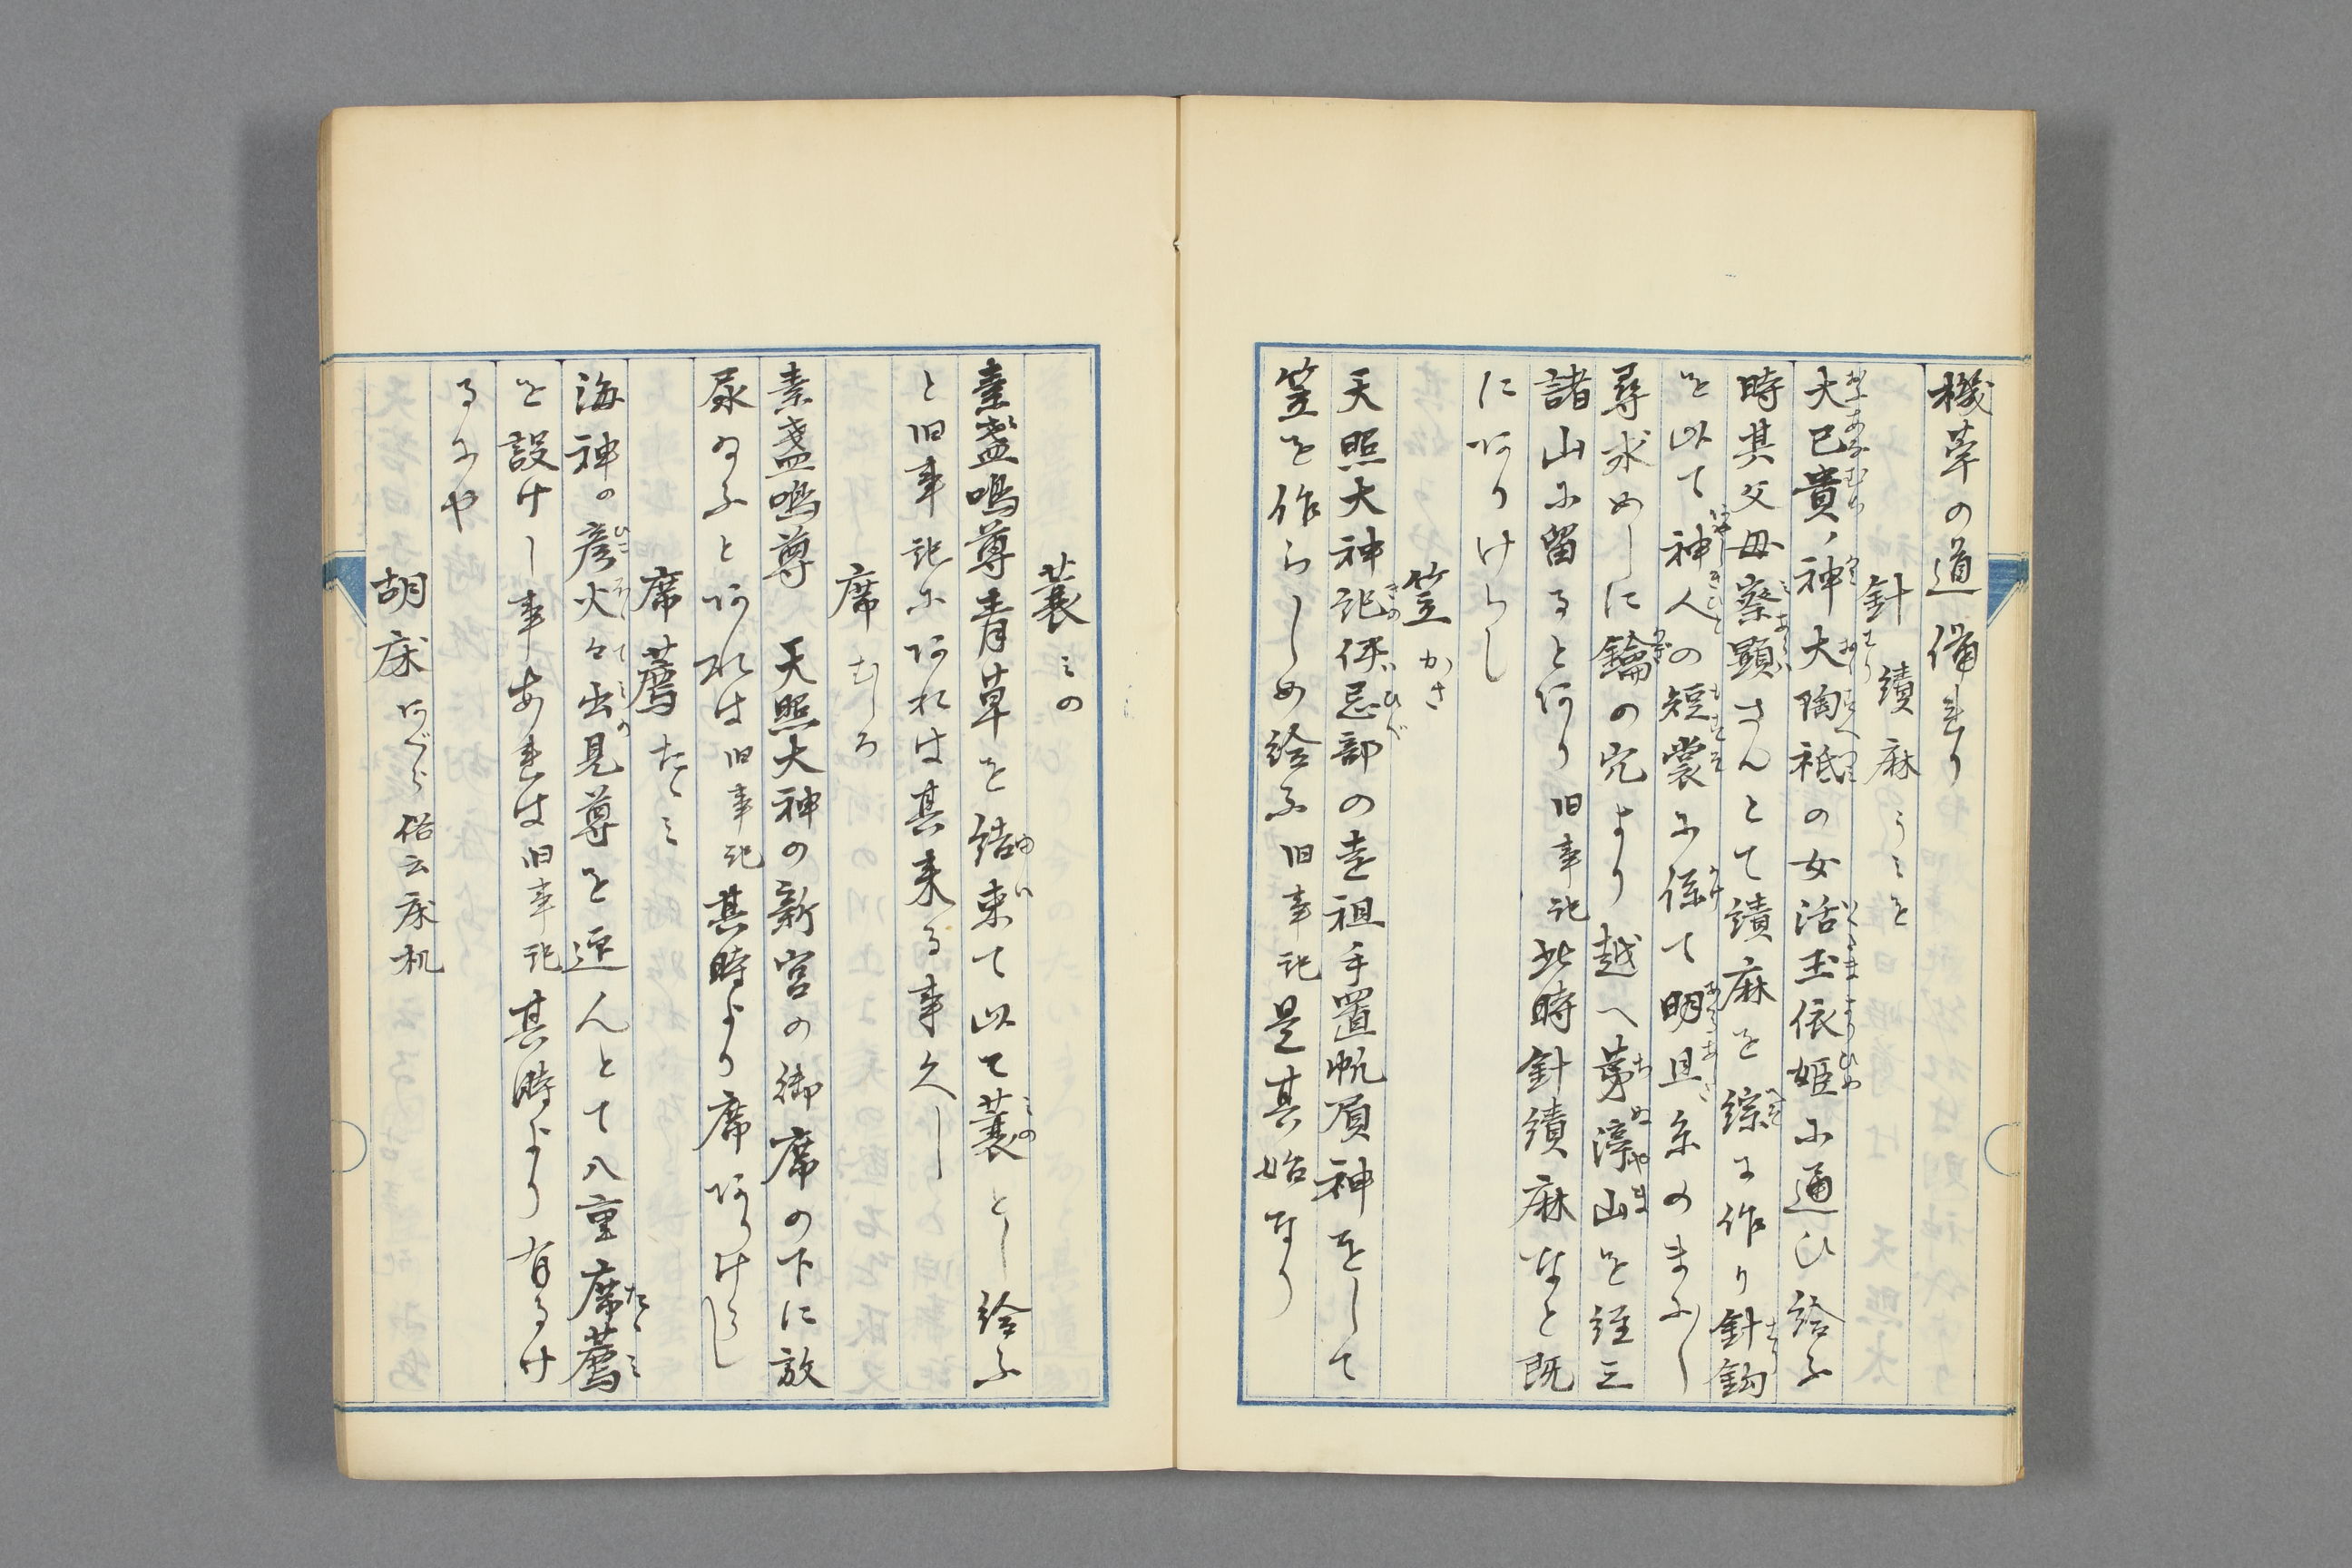 機芋の道備れり
針 はり 績麻 うミを
大己貴ノ神大陶祇の女活玉依姫に通ひ給ふ
時其父母察顕さんとて績麻を綜に作り針鈎
を以て神人の短裳に係て明旦糸のまにし
尋求めしに鑰の穴より越へ茅渟山を経三
諸山に留ると有り旧事記此時針績麻など既
にありけらし
笠 かさ
天照大神記伊忌部の遠祖手置帆負神をして
笠を作らしめ給ふ旧事記是其始なり
蓑 ミの
素盞嗚尊青草を結束て以て蓑とし給ふ
と旧事記にあれは其来る事久し
席 むしろ
素盞嗚尊 天照大神の新宮の御席の下に放
尿ゐふとあれは旧事記其時より席ありけらし
席薦 たゝミ
海神の彦火々出見尊を迎んとて八重席薦
を設けし事あれは旧事記其時より有るけ
るにや
胡床 あぐら 俗云床机